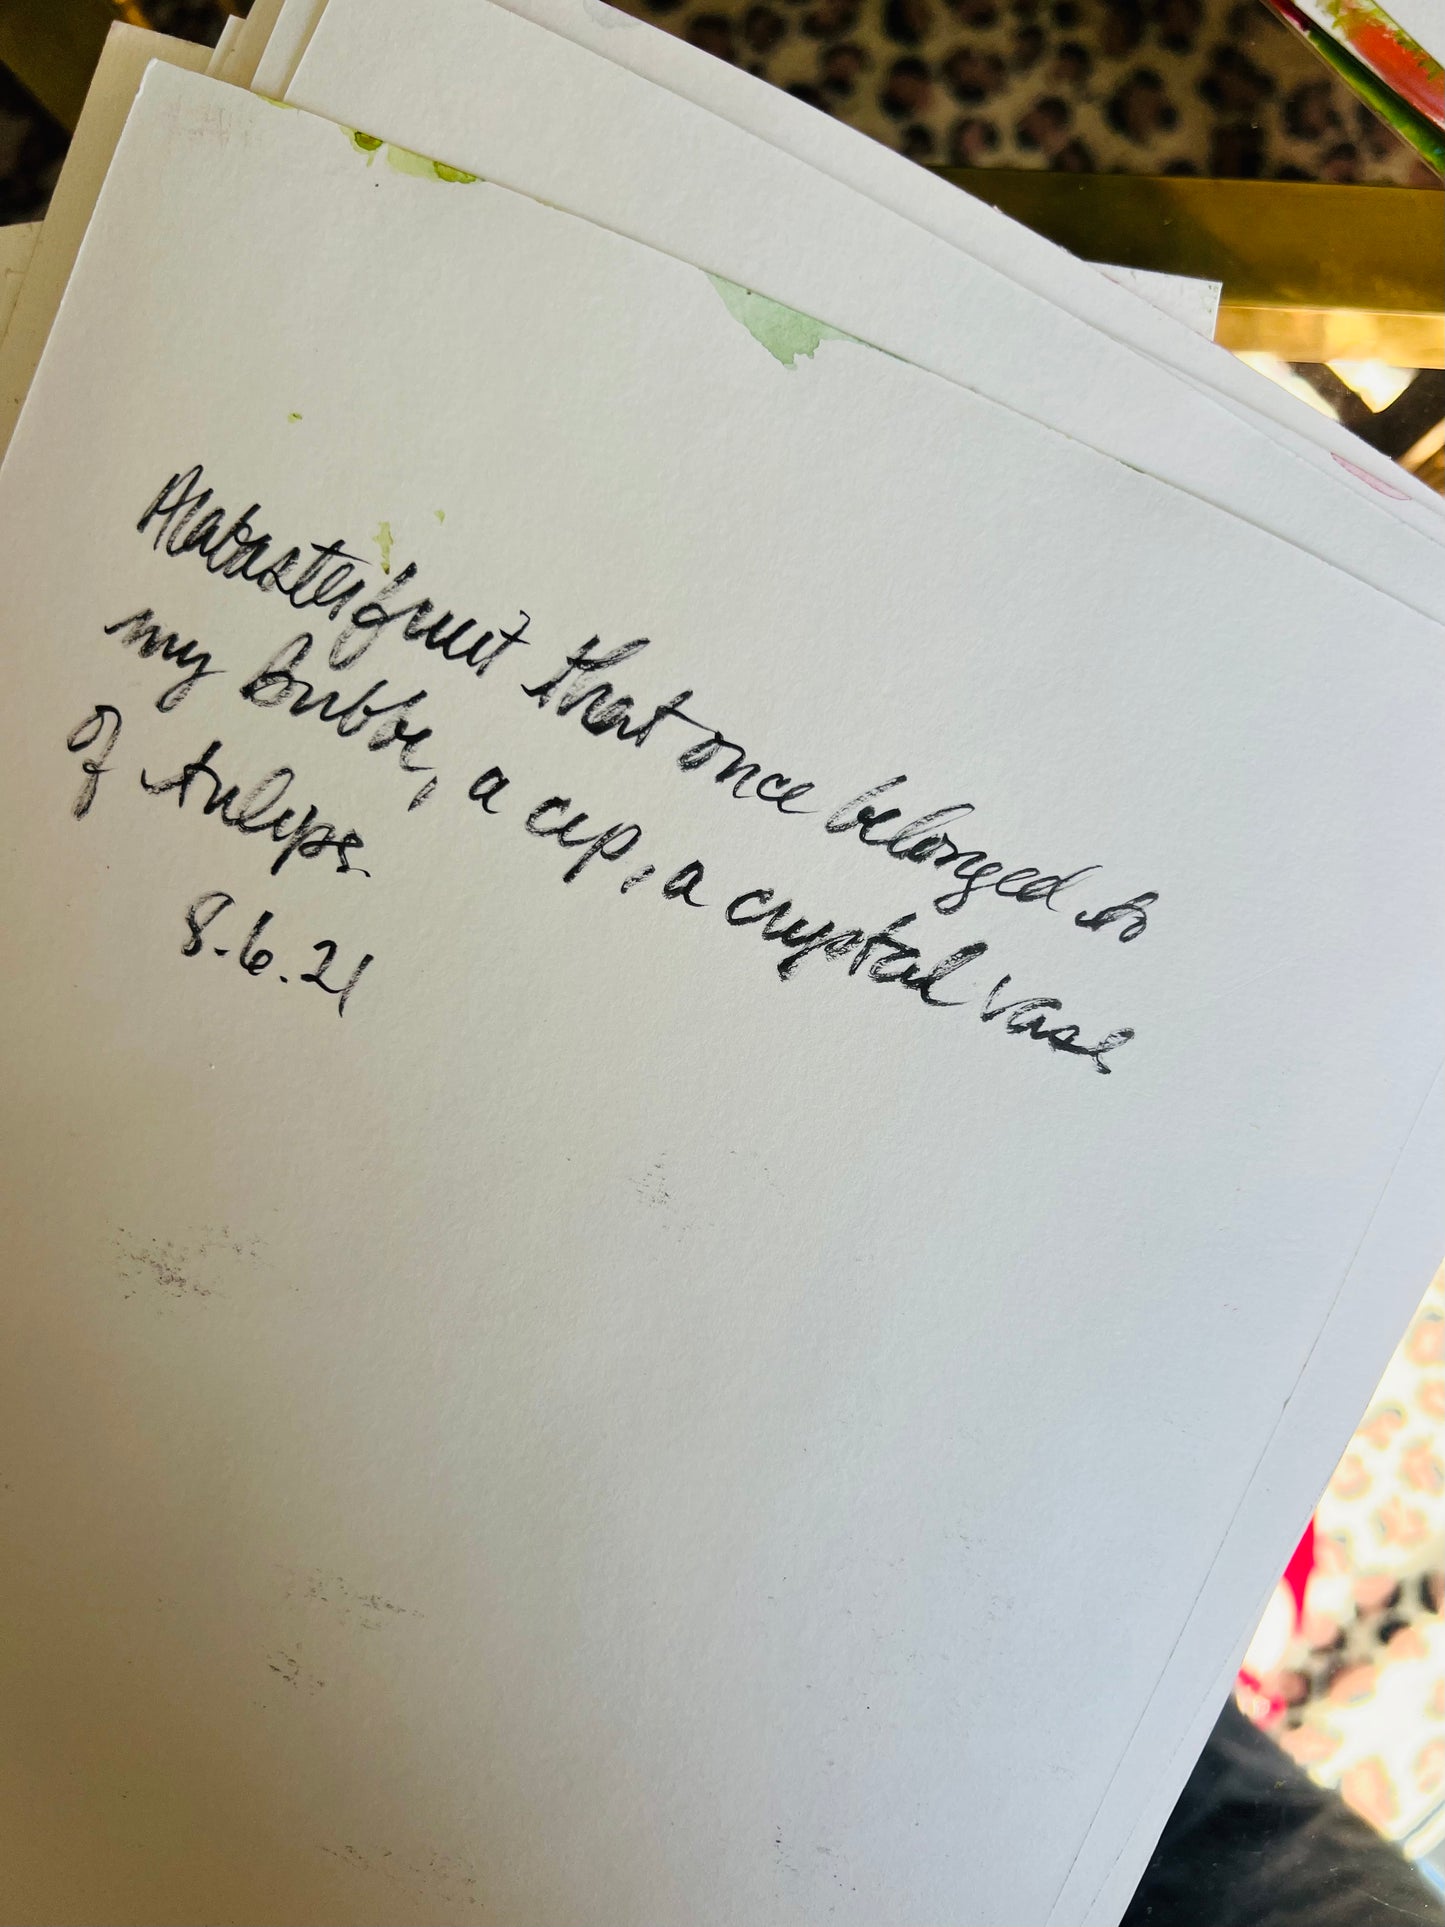 Alabaster fruit that once belonged to
my bubbe, a cup, a crystal vase
of tulips.
8.6.21